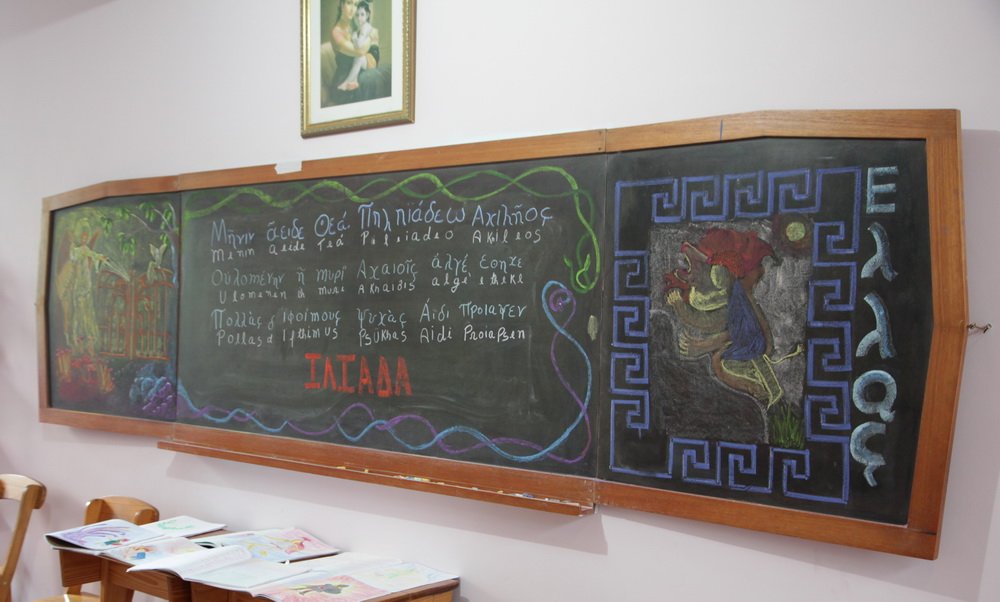 Μῆνιν ἄειδε Θέα Πηληϊάδεω Αχιλῆος
Menin aeide Tea Peleiadeo Akileos
Ουλομένην ἥ μυρί Αχαιοῖς άλγέ ἔθηκε
Ulomenen eh muri Akhaiois alge etheke
Πολλὰς δ ιφοίμους ψυχὰς Άιδι προιαψεν
Pollas d ifthimus Psükhas Aidi Proiapsen
ΙΛΙΑΔΑ
Ελλας